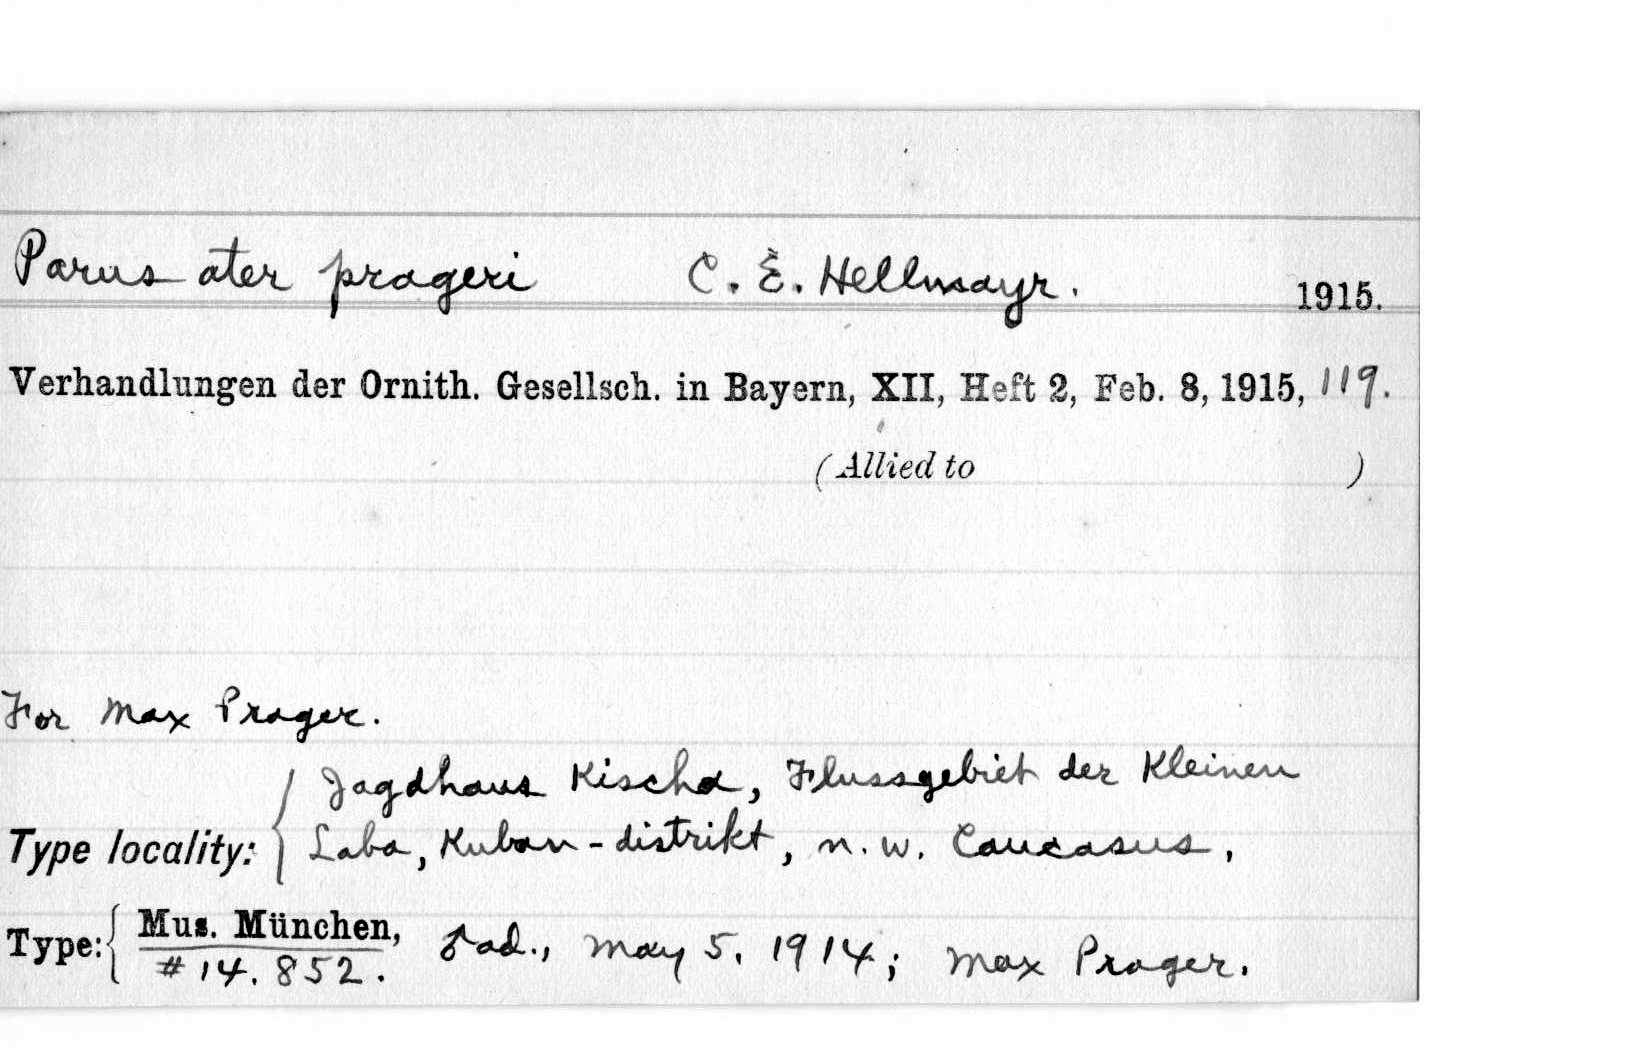 Parus ater prageri C. E. Hellmayr. 1915.
Verhandlungen der Ornith. Gesellsch. in Bayern, XII, Heft 2, Feb. 8, 1915, 119.
(Allied to )
For Max Prager.
Type locality: { Jagdhaus Kischa, Flussgebiet der Kleinen
Laba, Kuban-distrikt, n.w. Caucasus.
Type: { Mus. München, ♂ ad., May 5, 1914; Max Prager.
# 14.852.